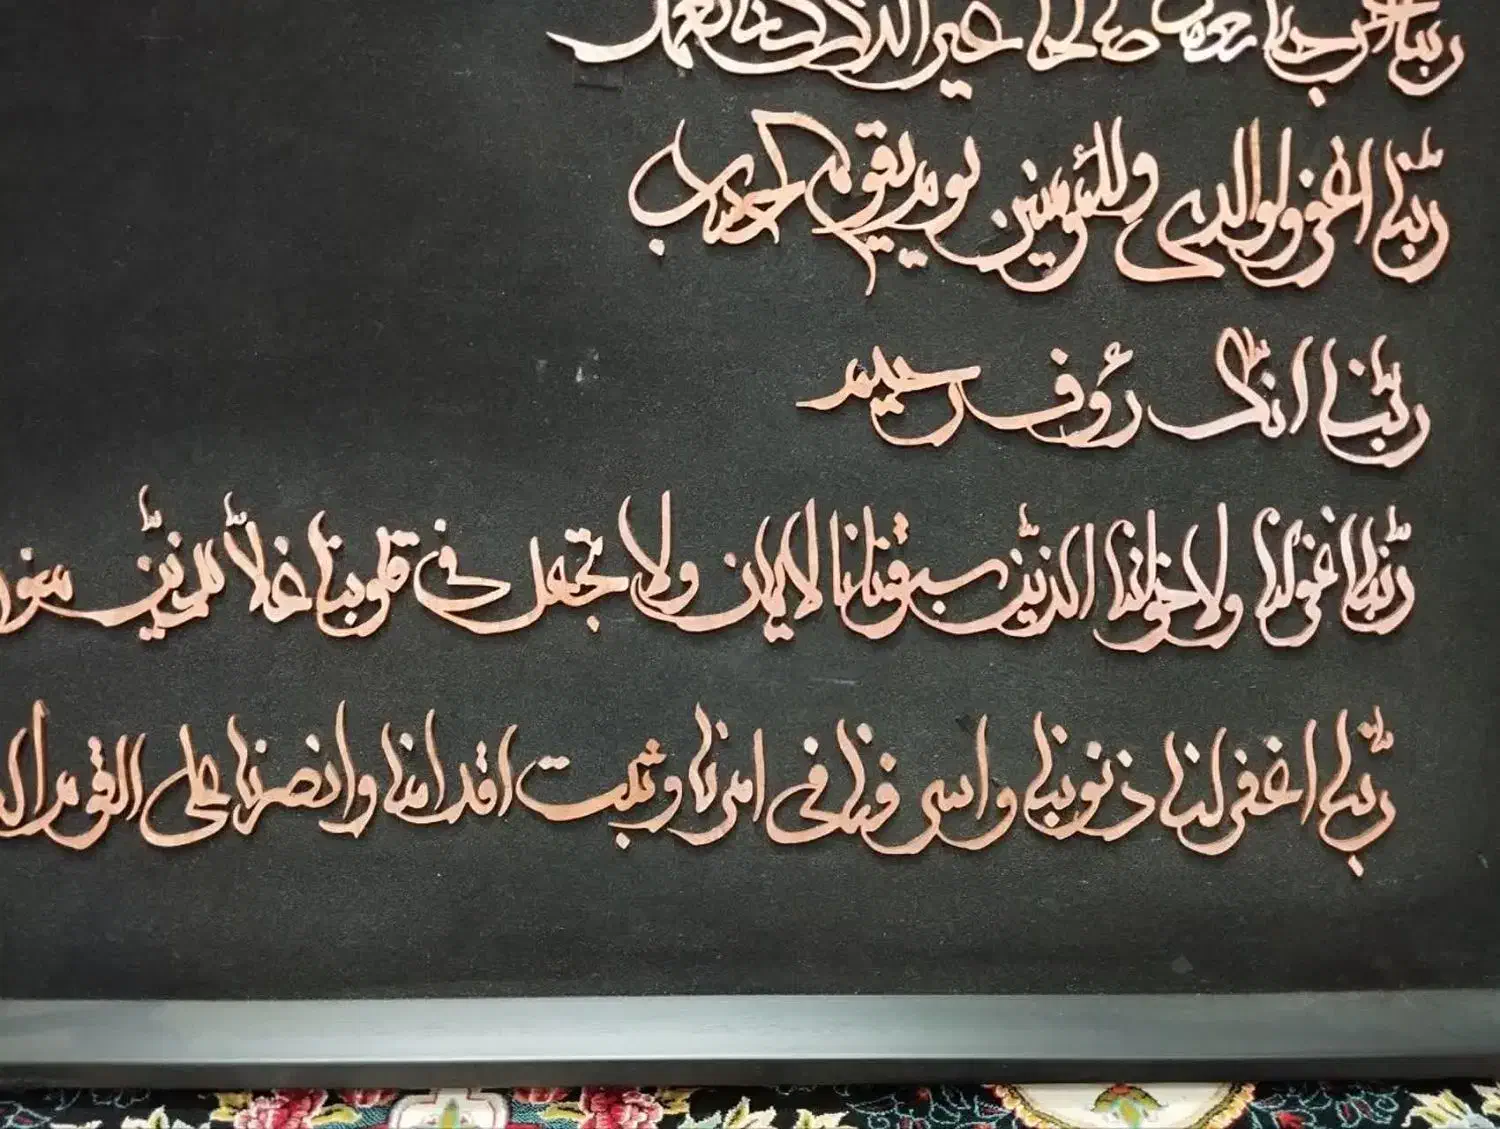 ربنا اخرجنا نعمل صالحا غير الذي كنا نعمل
ربنا اغفر ولوالدی وللمؤمنین یوم یقوم الحساب
ربنا انک رؤف رحیم
ربنا اغفرلنا ولاخواننا الذین سبقونا بالایمان ولا تجعل فی قلوبنا غلا للذین
ربنا اغفر لنا ذنوبنا واسرفنا فی امرنا وثبت اقدامنا وانصرنا علی القوم